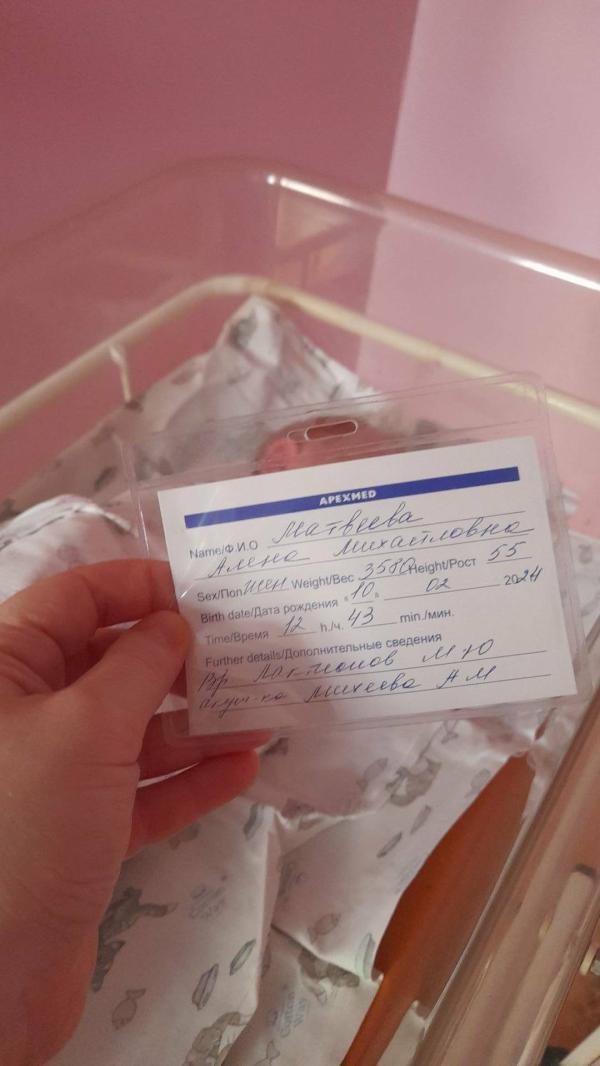 APEXMED
Name/Ф.И.О Матвеева
Алена Михайловна
Sex/Пол жен Weight/Вес 3580 Height/Рост 55
Birth date/Дата рождения «10» 02 2024
Time/Время 12 h./ч. 43 min./мин.
Further details/Дополнительные сведения
Вр Лактионов М Ю
акуш-ка Михеева А М
Cotton Way
Cotton Way